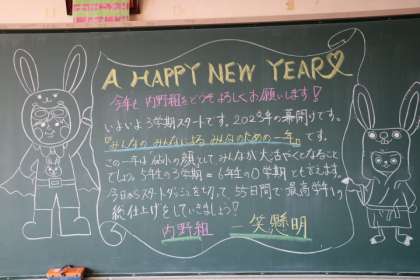 A HAPPY NEW YEAR
今年も 内野組をどうぞよろしくお願いします!
いよいよ3学期スタートです。2023年の幕開けです。
『みんなの みんなによる みんなのための一年』です。
この一年は 仙小の顔として みんなが大活やくとなること
でしょう。5年の3学期=6年の0学期とも言えます。
今日からスタートダッシュをきって 55日間で 最高学年への
総仕上げをしていきましょう?
内野組 一笑懸明